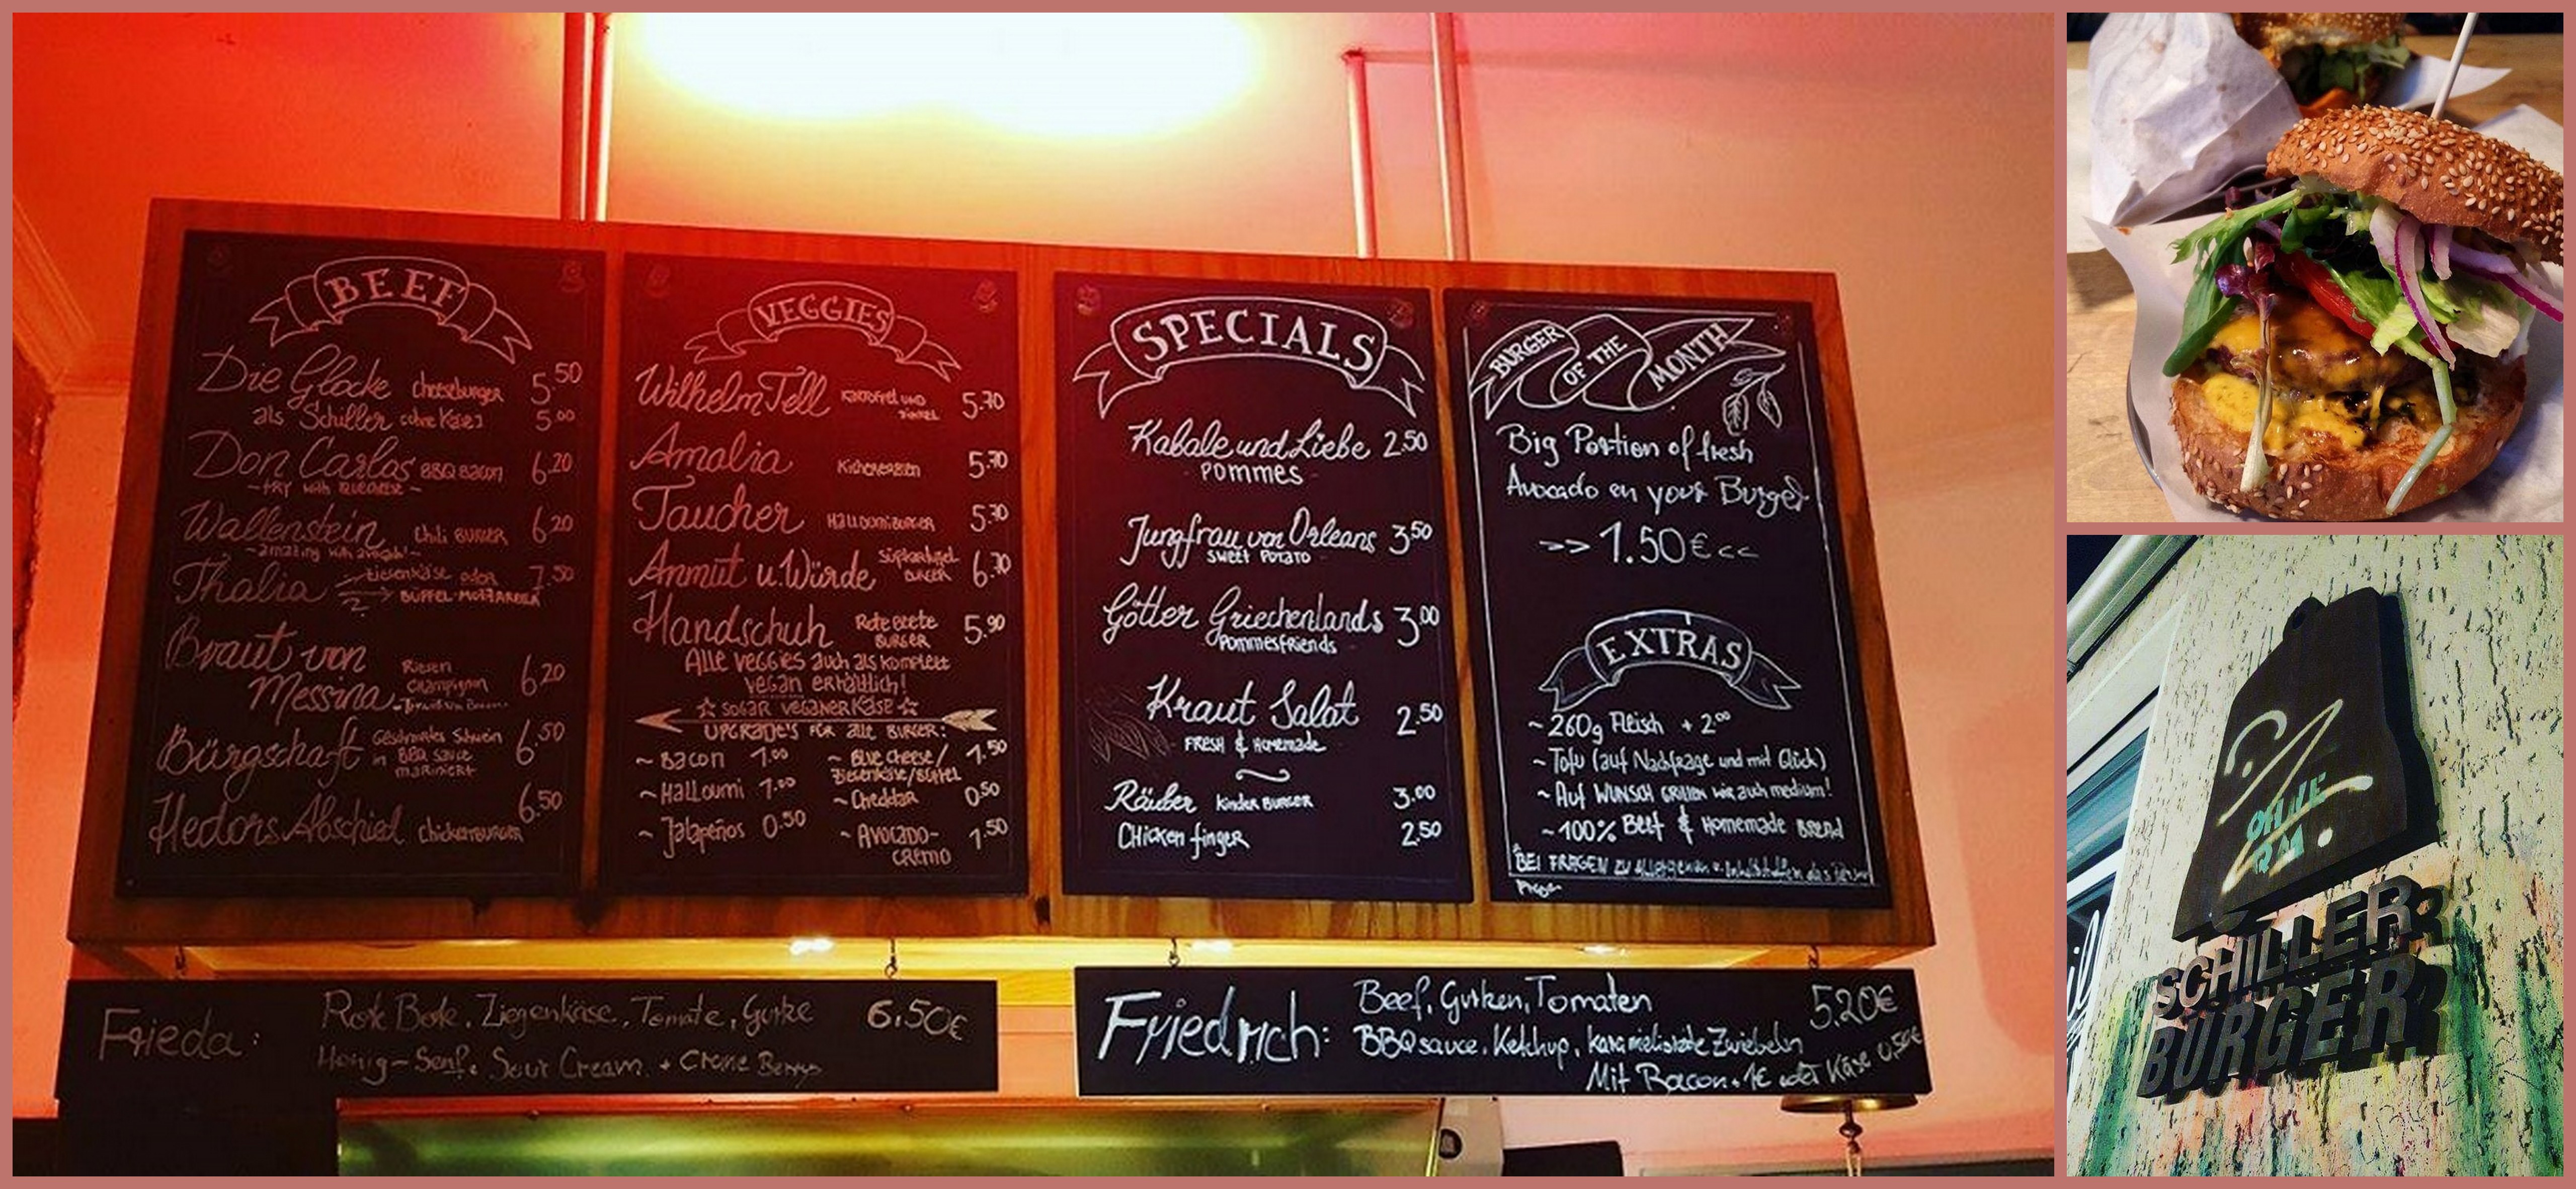 BEEF
Die Glocke cheeseburger 5.50
als Schiller (ohne Käse) 5.00
Don Carlos BBQ Bacon 6.20
Wallenstein Chili BURGER 6.20
Thalia Ziegenkäse oder 7.50
BÜFFEL-MOZZARELLA
Braut von Riesen
Messina Champignon 6.20
Bürgschaft Geschmortes Schwein 6.50
in BBQ Sauce
mariniert
Hectors Abschied Chickenburger 6.50
VEGGIES
Wilhelm Tell Kartoffel und 5.70
Amalia Kichererbsen 5.70
Taucher HalloumiBURGER 5.70
Anmut u. Würde Süßkartoffel BURGER 6.70
Handschuh Rote Beete BURGER 5.90
Alle Veggies auch als komplett
vegan erhältlich!
☆ SOGAR VEGANER KÄSE ☆
UPGRADE'S FÜR alle BURGER:
~ Bacon 1.00 ~ Blue cheese/ 1.50
Ziegenkäse/Büffel
~ Halloumi 1.00 ~ Cheddar 0.50
~ Jalapeños 0.50 ~ AVOCADO- 1.50
CREMO
SPECIALS
Kabale und Liebe 2.50
POMMES
Jungfrau von Orleans 3.50
SWEET POTATO
Götter Griechenlands 3.00
Pommesfriends
Kraut Salat 2.50
FRESH & Homemade
Räuber Kinder BURGER 3.00
CHicken finger 2.50
BURGER OF THE MONTH
Big Portion of fresh
Avocado on your Burger
>> 1.50€ <<
EXTRAS
~ 260g Fleisch + 2.00
~ Tofu (auf Nachfrage und mit Glück)
~ Auf WUNSCH GRILLEN wir auch medium!
~ 100% Beef & Homemade BREAD
BEI FRAGEN zu Allergenen u. Inhaltsstoffen
Frieda: Rote Bete, Ziegenkäse, Tomate, Gurke 6,50€
Honig-Senf, Sour Cream + Crane Berrys
Friedrich: Beef, Gurken, Tomaten 5.20€
BBQ sauce, Ketchup, karamelisierte Zwiebeln
Mit Bacon + 1€ oder Käse 0,50€
SCHILLER
BURGER